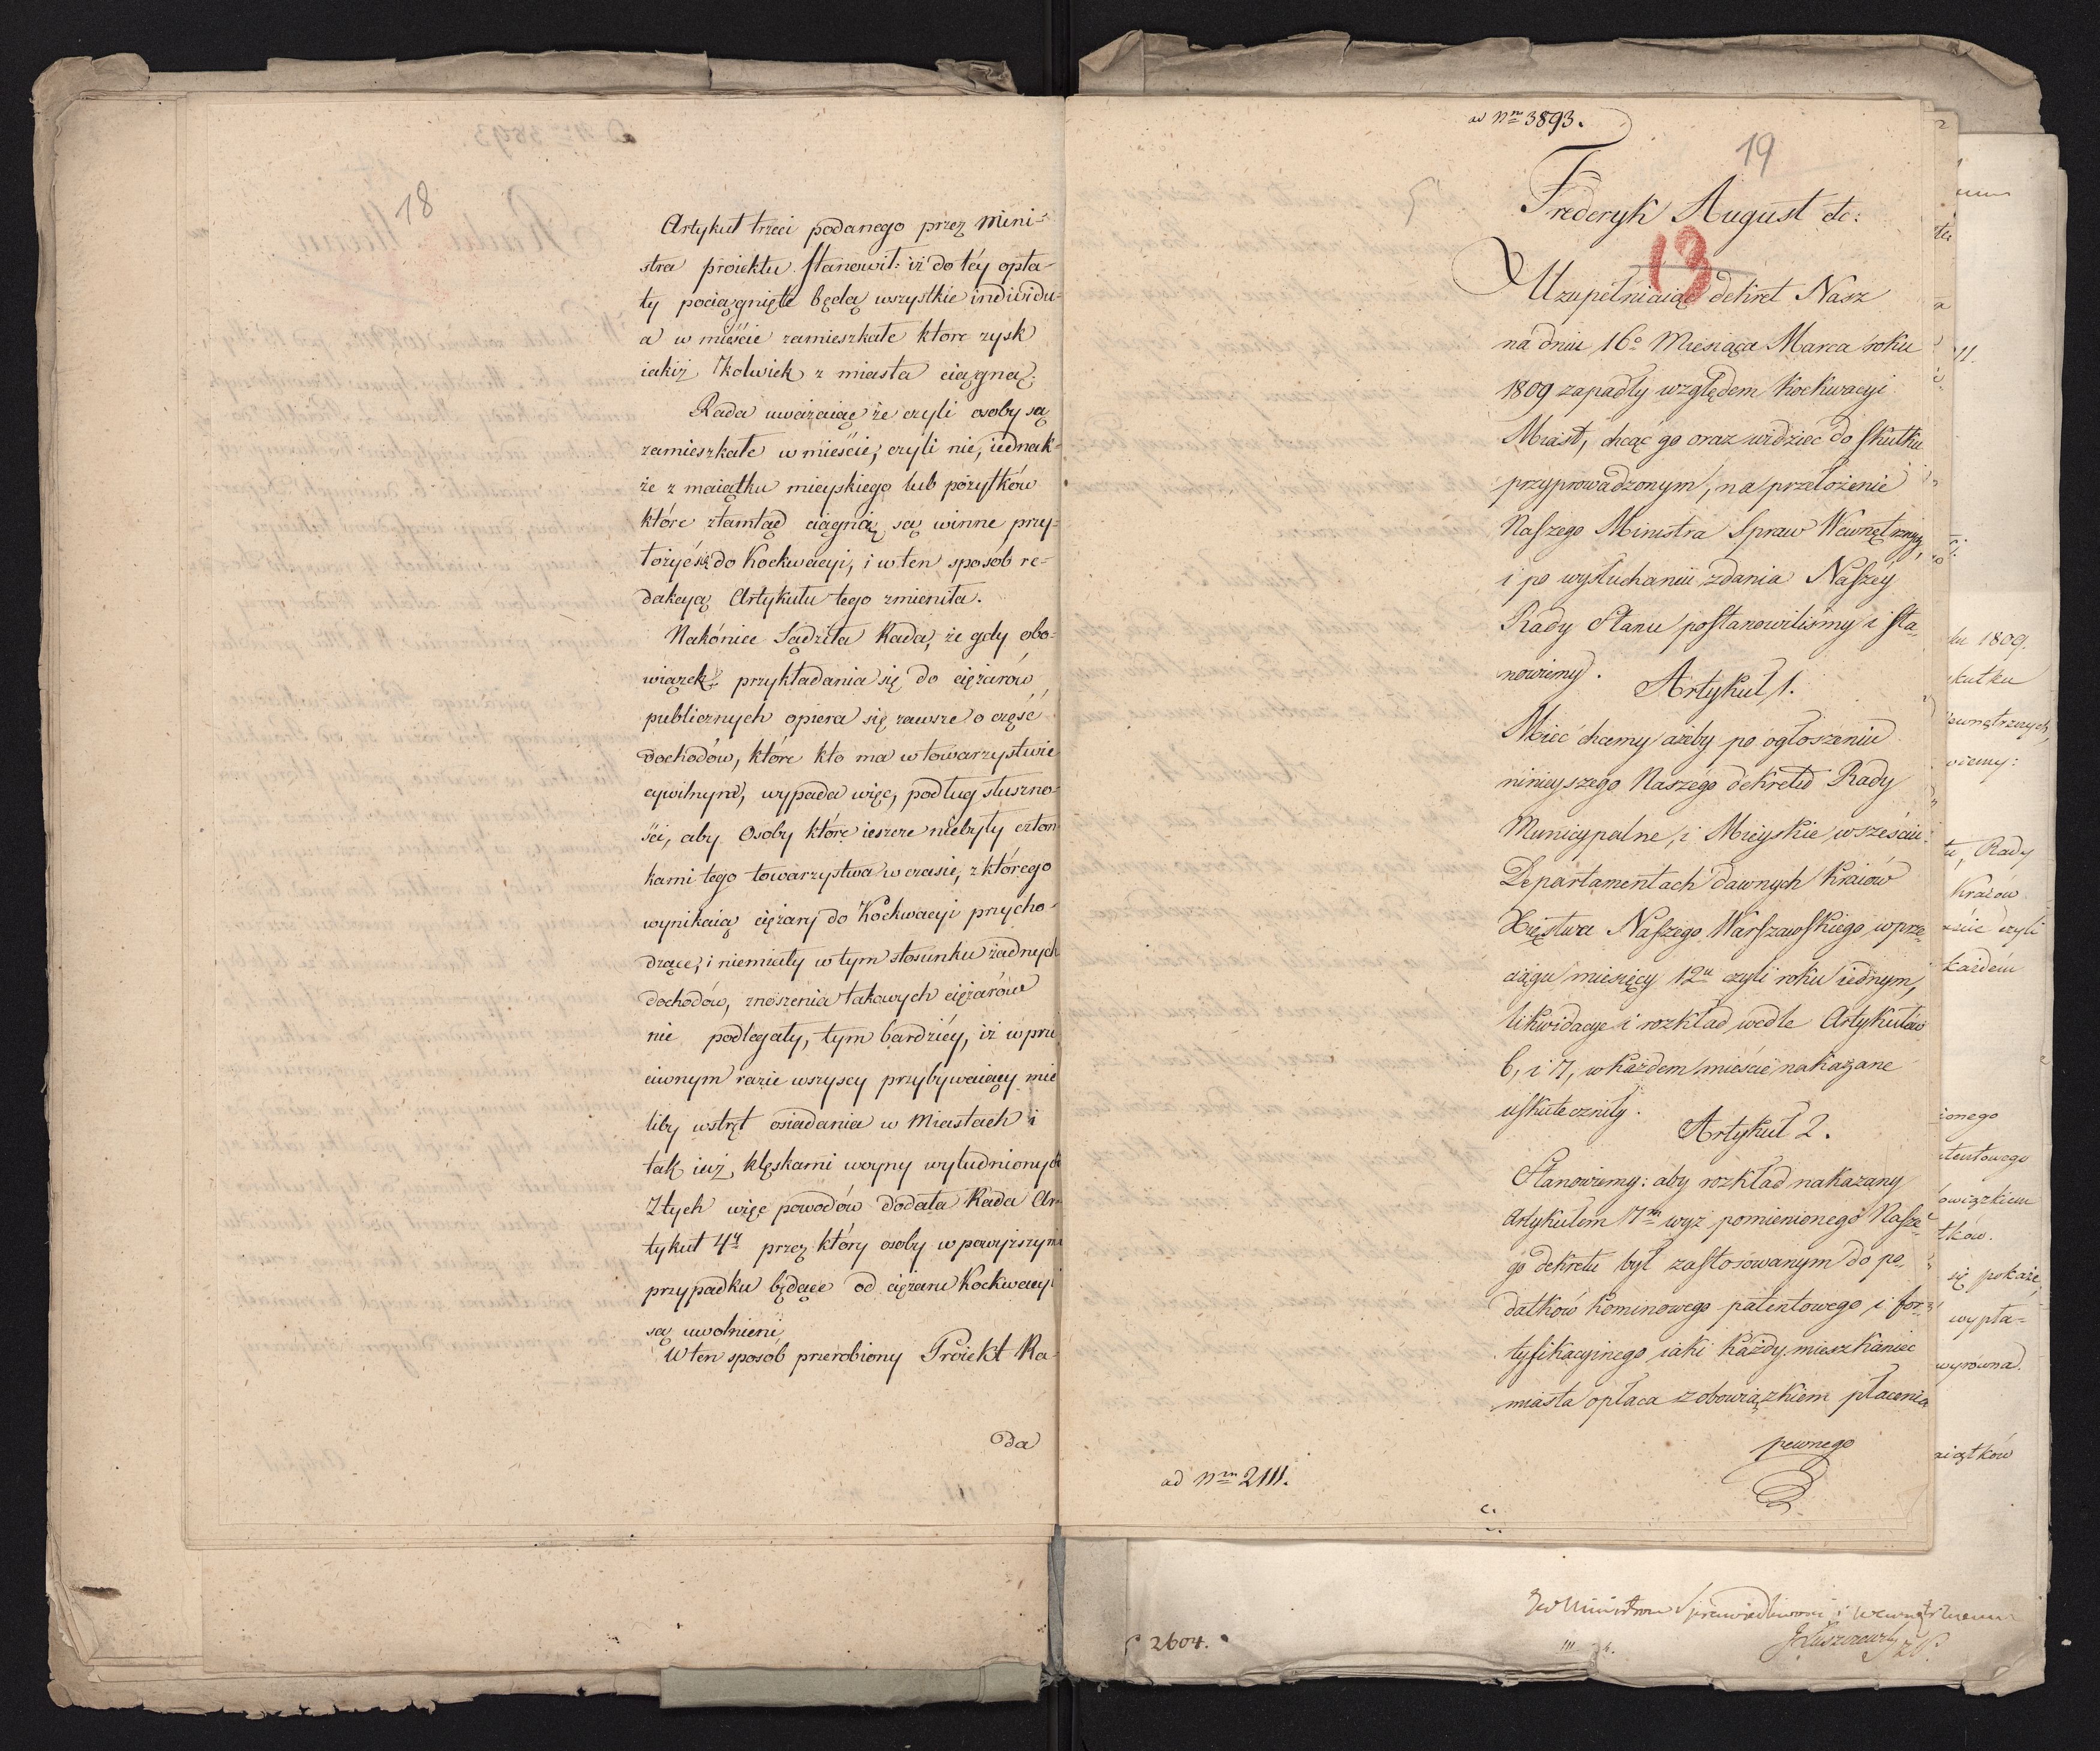 18
Artykuł trzeci podanego przez Mini-
stra proiektu stanowił: iż do téy opła-
ty pociągnięte będą wszystkie individu-
a w mieście zamieszkałe które zysk
iakiż kolwiek z miasta ciągną;
Rada uważaiąc że czyli osoby są
zamieszkałe w mieście, czyli nie, iednak-
że z maiątku mieyskiego lub pożytków
które ztamtąd ciągną są winne przy-
łożyć się do Koekwacyi, i w ten sposób re-
dakcyą Artykułu tego zmieniła.
Nakóniec Sądziła Rada, że gdy obo-
wiązek przykładania się do ciężarów
publicznych opiera się zawsze o część
dochodów, które kto ma w towarzystwie
cywilnym, wypada więc, podług słuszno-
ści, aby Osoby które ieszcze niebyły człon
kami tego towarzystwa w czasie, z którego
wynikaią ciężary do Koekwacyi przycho-
dzące, i niemiały w tym stosunku żadnych
dochodów, znoszenia takowych ciężarów
nie podlegały, tym bardziéy, iż w prze
ciwnym razie wszyscy przybywaiący mie
liby wstręt osiadania w Miastach i
tak iuż klęskami woyny wyludnionych
Z tych więc powodów dodała Rada Ar-
tykuł 4y przez który osoby w powyższym
przypadku będące od ciężaru Koekwacyi
są uwolnieni
W ten sposob przerobiony Proiekt Ra-
da
ad Nrm 3893.
19
Frederyk August etc:
13
Uzupełniaiąc dekret Nasz
na dniu 16o Miesiąca Marca roku
1809 zapadły względem Koekwacyi
Miast, chcąc go oraz widzieć do skutku
przyprowadzonym, na przełożenie
Naszego Ministra Spraw Wewnętrznych,
i po wysłuchaniu zdania Naszéy
Rady Stanu postanowiliśmy i sta-
nowiemy.
Artykuł 1.
Mieć chcemy ażeby po ogłoszeniu
ninieyszego Naszego dekretu Rady
Municypalne, i Mieyskie w sześciu
Departamentach dawnych Kraiów
Xięstwa Naszego Warszawskiego w prze-
ciągu miesięcy 12u czyli roku iednym,
likwidacye i rozkład wedle Artykułów
6, i 7, w każdem mieście nakazane
uskuteczniły.
Artykuł 2.
Stanowiemy: aby rozkład nakazany
Artykułem 7m wyż pomienionego Nasze-
go dekretu był zastosowanym do po-
datków Kominowego patentowego i for-
tyfikacyinego iaki każdy mieszkaniec
miasta opłaca z obowiązkiem płacenia
pewnego
ad Nrm 2111.
ku 1809.
skutku
ewnętrznych,
wiemy:
tu, Rady
Kraiów
czyli
każdém
ionego
tentowego
owiązkiem
tków.
się pokaże,
wypła-
wyrówna.
aiątków
2604.